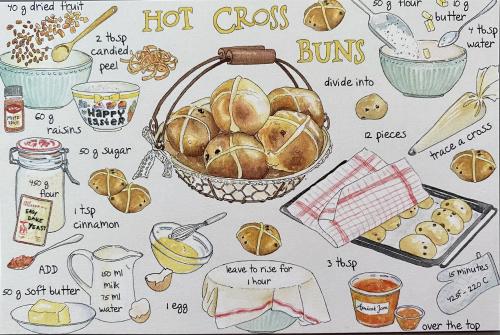 70 g dried fruit
HOT CROSS
BUNS
50 g flour
10 g
butter
4 tbsp
water
2 tbsp
candied
peel
MIXED
SPICE
60 g
raisins
Happy
EASTER
divide into
12 pieces
trace a cross
50 g sugar
450 g
flour
EASY
BAKE
YEAST
1 tsp
cinnamon
ADD
50 g soft butter
150 ml
milk
75 ml
water
1 egg
leave to rise for
1 hour
3 tbsp
Apricot Jam
15 minutes
425F - 220 C
over the top